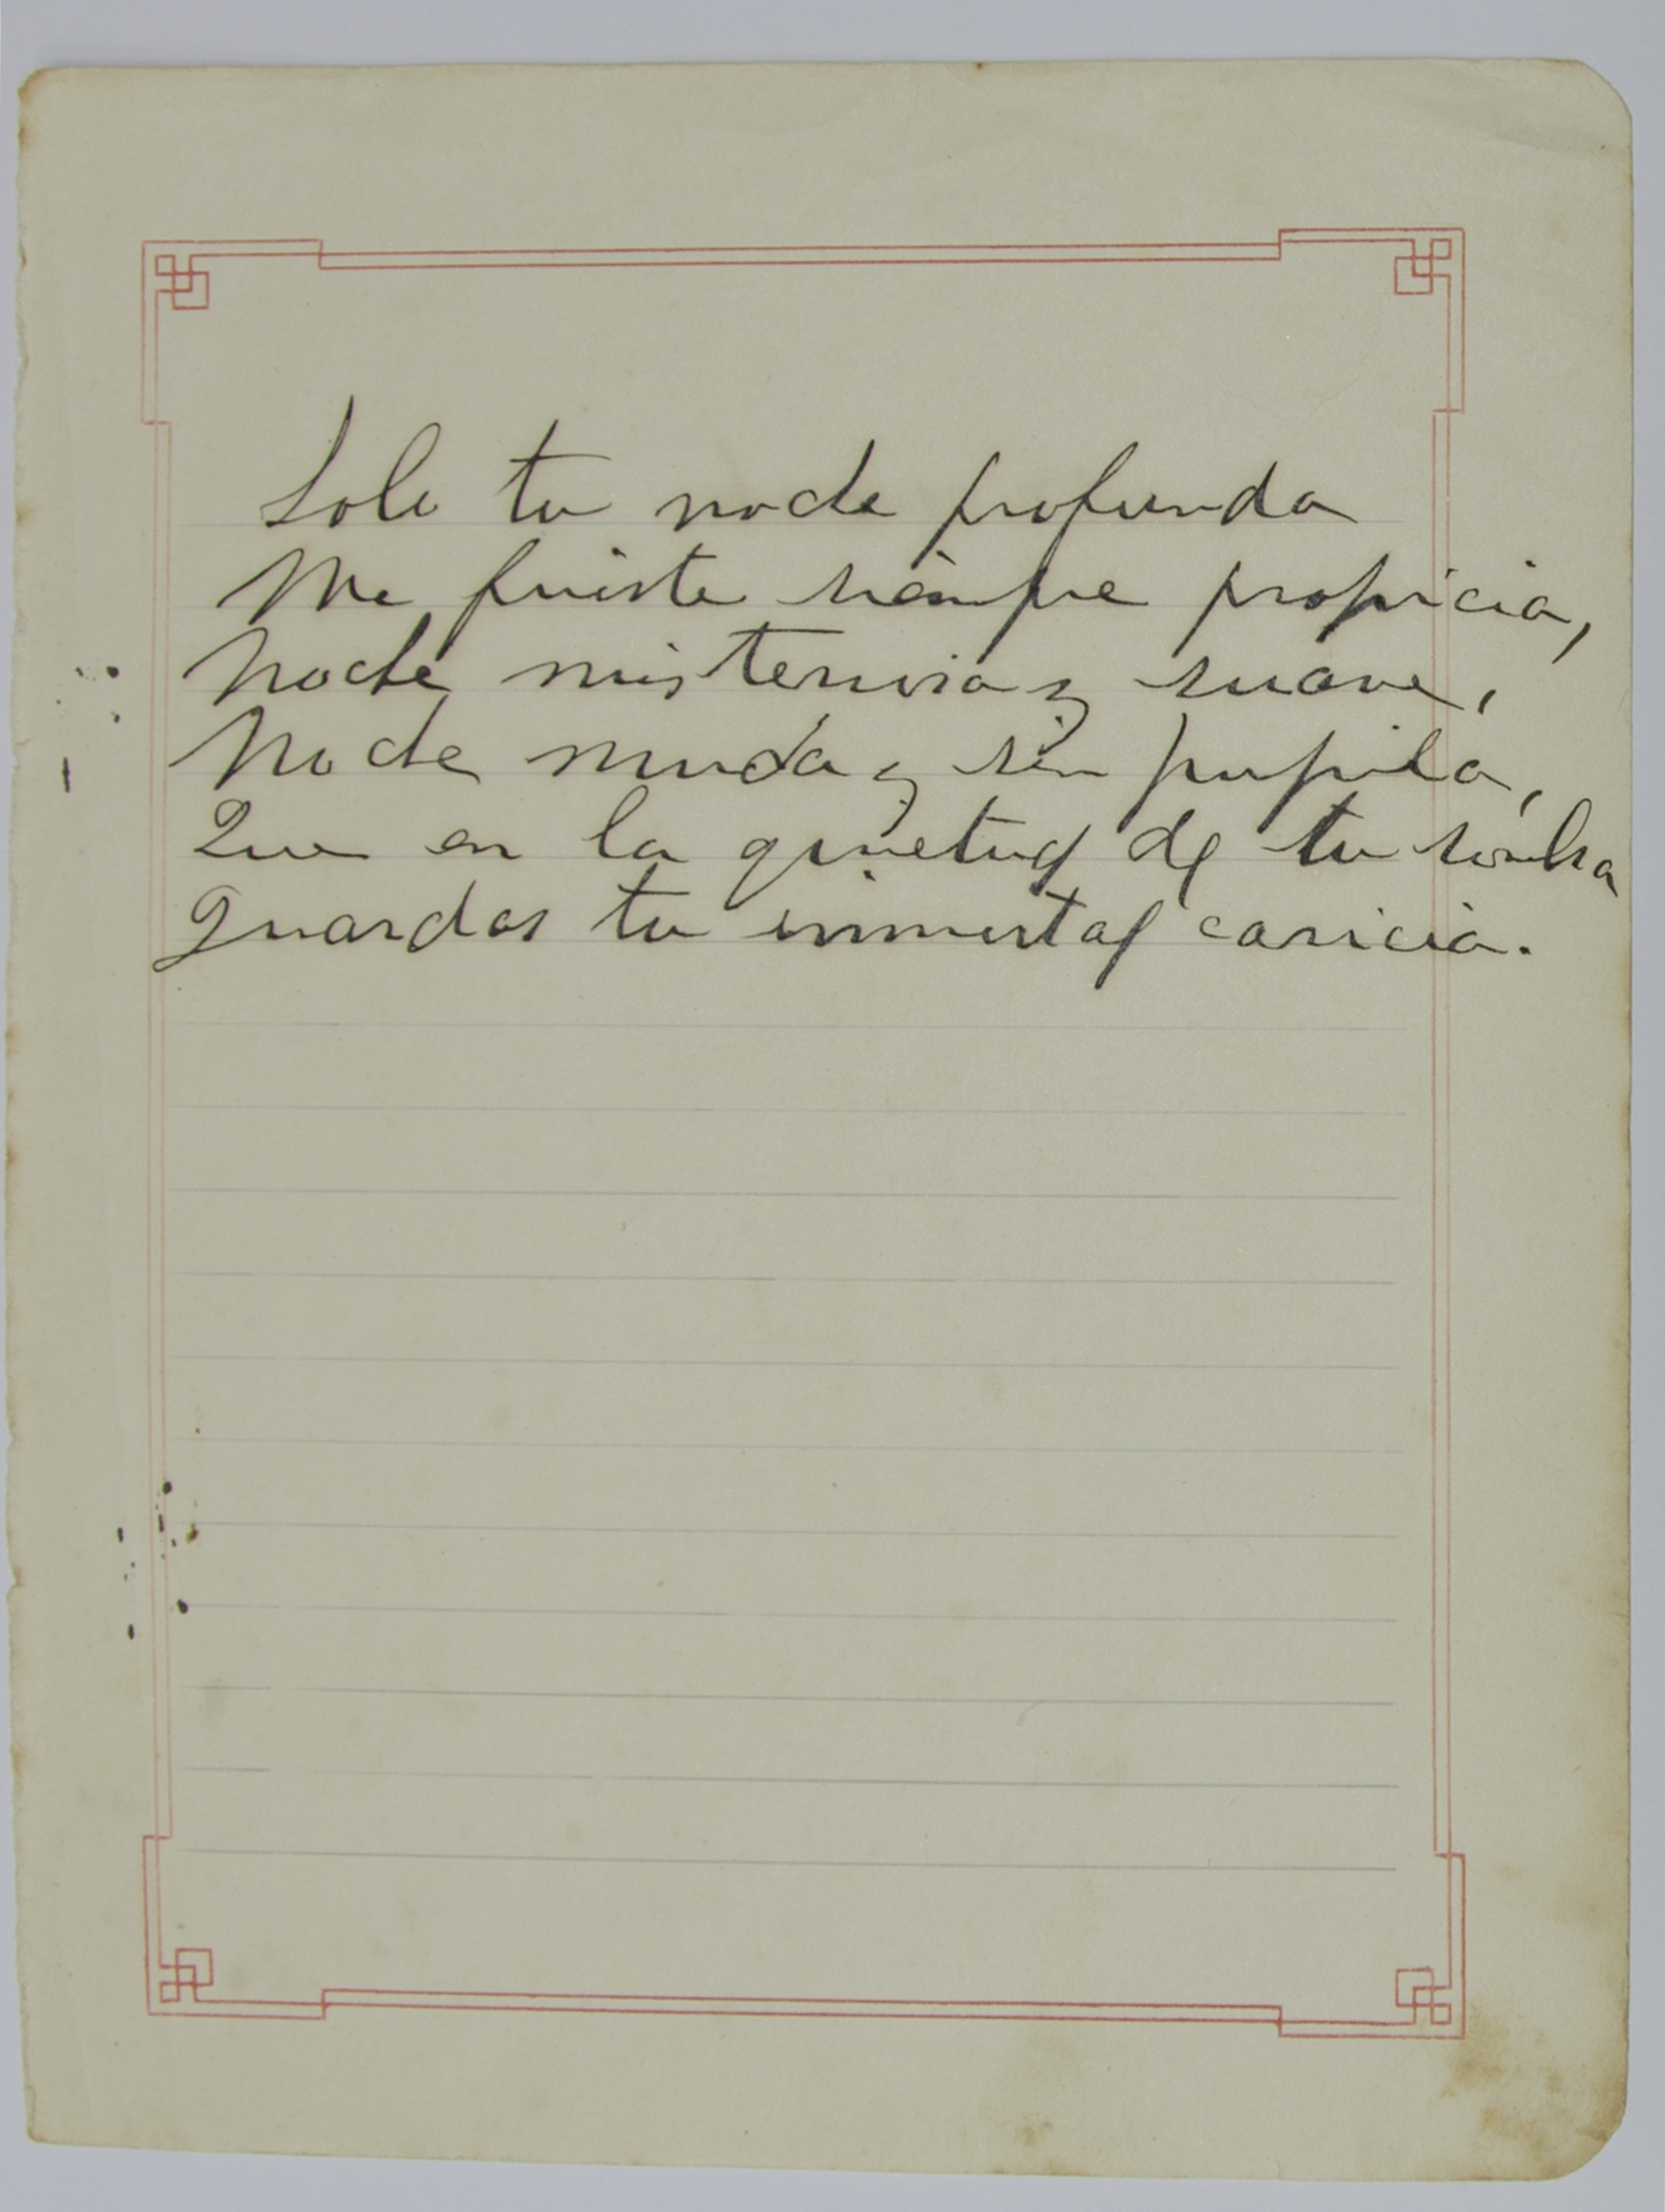 Solo tu noche profunda
Me fuiste siempre propicia,
Noche misteriosa y suave,
Noche muda y sin pupila,
Que en la quietud de tu sombra
guardas tu inmortal caricia.